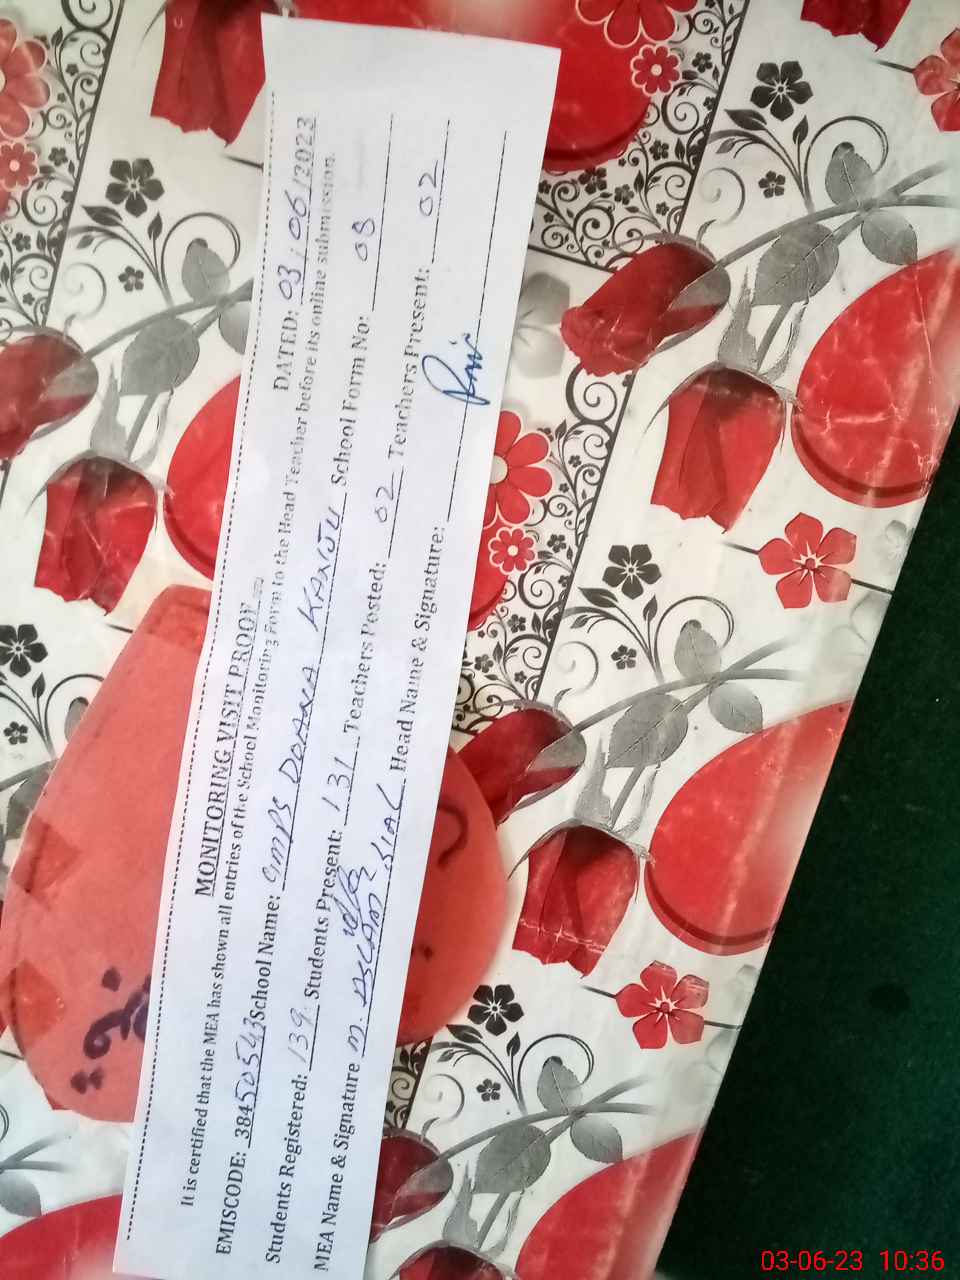 MONITORING VISIT PROOF
DATED: 03/06/2023
It is certified that the MEA has shown all entries of the School Monitoring Form to the Head Teacher before its online submission.
EMISCODE: 38450543 School Name: GMPS DOANA KANJU School Form No: 08
Students Registered: 139 Students Present: 131 Teachers Posted: 02 Teachers Present: 02
MEA Name & Signature M. ASLAM SIAL Head Name & Signature:
03-06-23 10:36